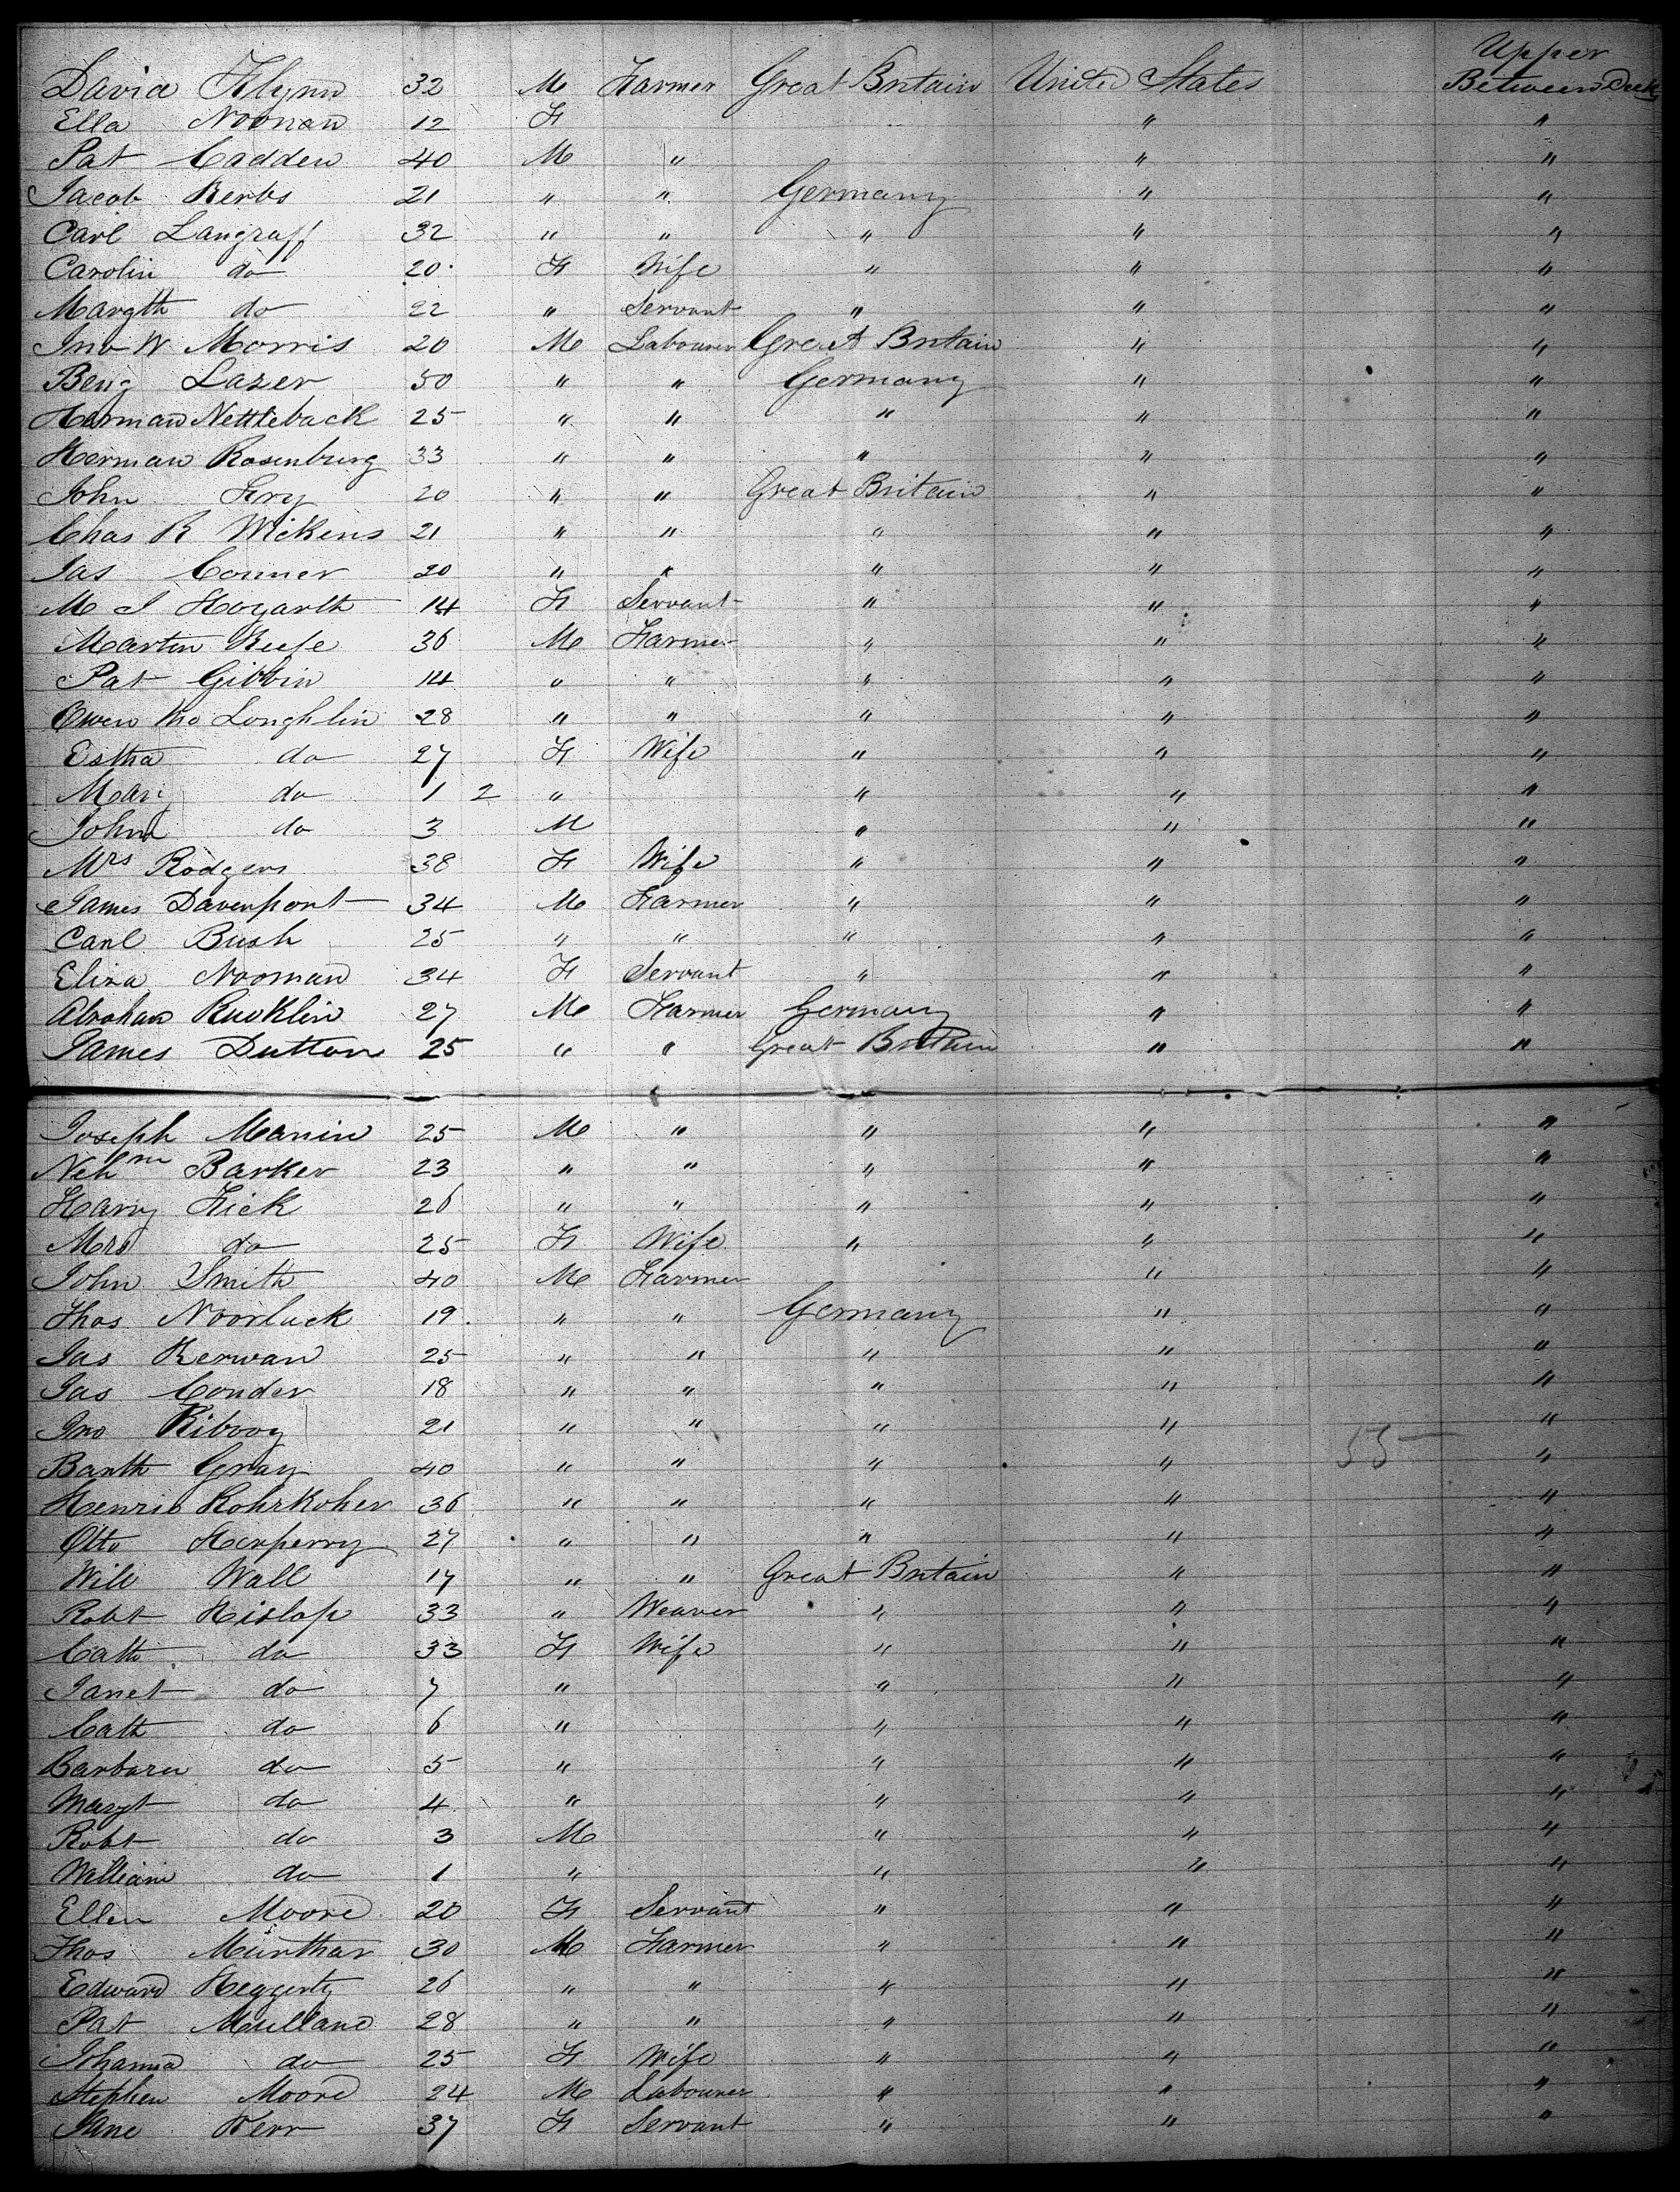 Upper
David Flynn 32 M Farmer Great Britain United States Between Decks
Ella Noonan 12 F " "
Pat Cadden 40 M " " "
Jacob Kerbs 21 " " Germany " "
Carl Langraff 32 " " " " "
Carolin do 20 F Wife " " "
Margth do 22 " Servant " " "
Jno W Morris 20 M Labourer Great Britain " "
Benj Lazer 50 " " Germany " "
Herman Nettleback 25 " " " " "
Herman Rosenburg 33 " " " " "
John Fry 20 " " Great Britain " "
Chas R Wickens 21 " " " " "
Jas Conner 20 " " " " "
M J Hogarth 14 F Servant " " "
Martin Keefe 36 M Farmer " " "
Pat Gibbin 14 " " " " "
Owen Mc Loughlin 28 " " " " "
Estha do 27 F Wife " " "
Mary do 1 2 " " " "
John do 3 M " " "
Mrs Rodgers 38 F Wife " " "
James Davenport 34 M Farmer " " "
Carl Bush 25 " " " " "
Eliza Nooman 34 F Servant " " "
Abraham 27 M Farmer Germany " "
James Dutton 25 " " Great Britain " "
Joseph Manin 25 M " " " "
Neh Barker 23 " " " " "
Harry Fick 26 " " " " "
Mrs do 25 F Wife " " "
John Smith 40 M Farmer " "
Thos Noorluck 19 " " Germany " "
Jas Kerwan 25 " " " " "
Jas Conder 18 " " " " "
Jno Kibooy 21 " " " " "
Barth Gray 40 " " " " 55 "
Henrie Rohrkoher 36 " " " " "
Otto Harperry 27 " " " " "
Will Wall 17 " " Great Britain " "
Robt Hislop 33 " Weaver " " "
Cath do 33 F Wife " " "
Janet do 7 " " " "
Cath do 6 " " " "
Barbara do 5 " " " "
Margt do 4 " " " "
Robt do 3 M " " "
William do 1 " " " "
Ellen Moore 20 F Servant " " "
Thos Murthar 30 M Farmer " " "
Edward Heggerty 26 " " " " "
Pat Mullane 28 " " " " "
Johanna do 25 F Wife " " "
Stephen Moore 24 M Labourer " " "
Jane Kerr 37 F Servant " " "